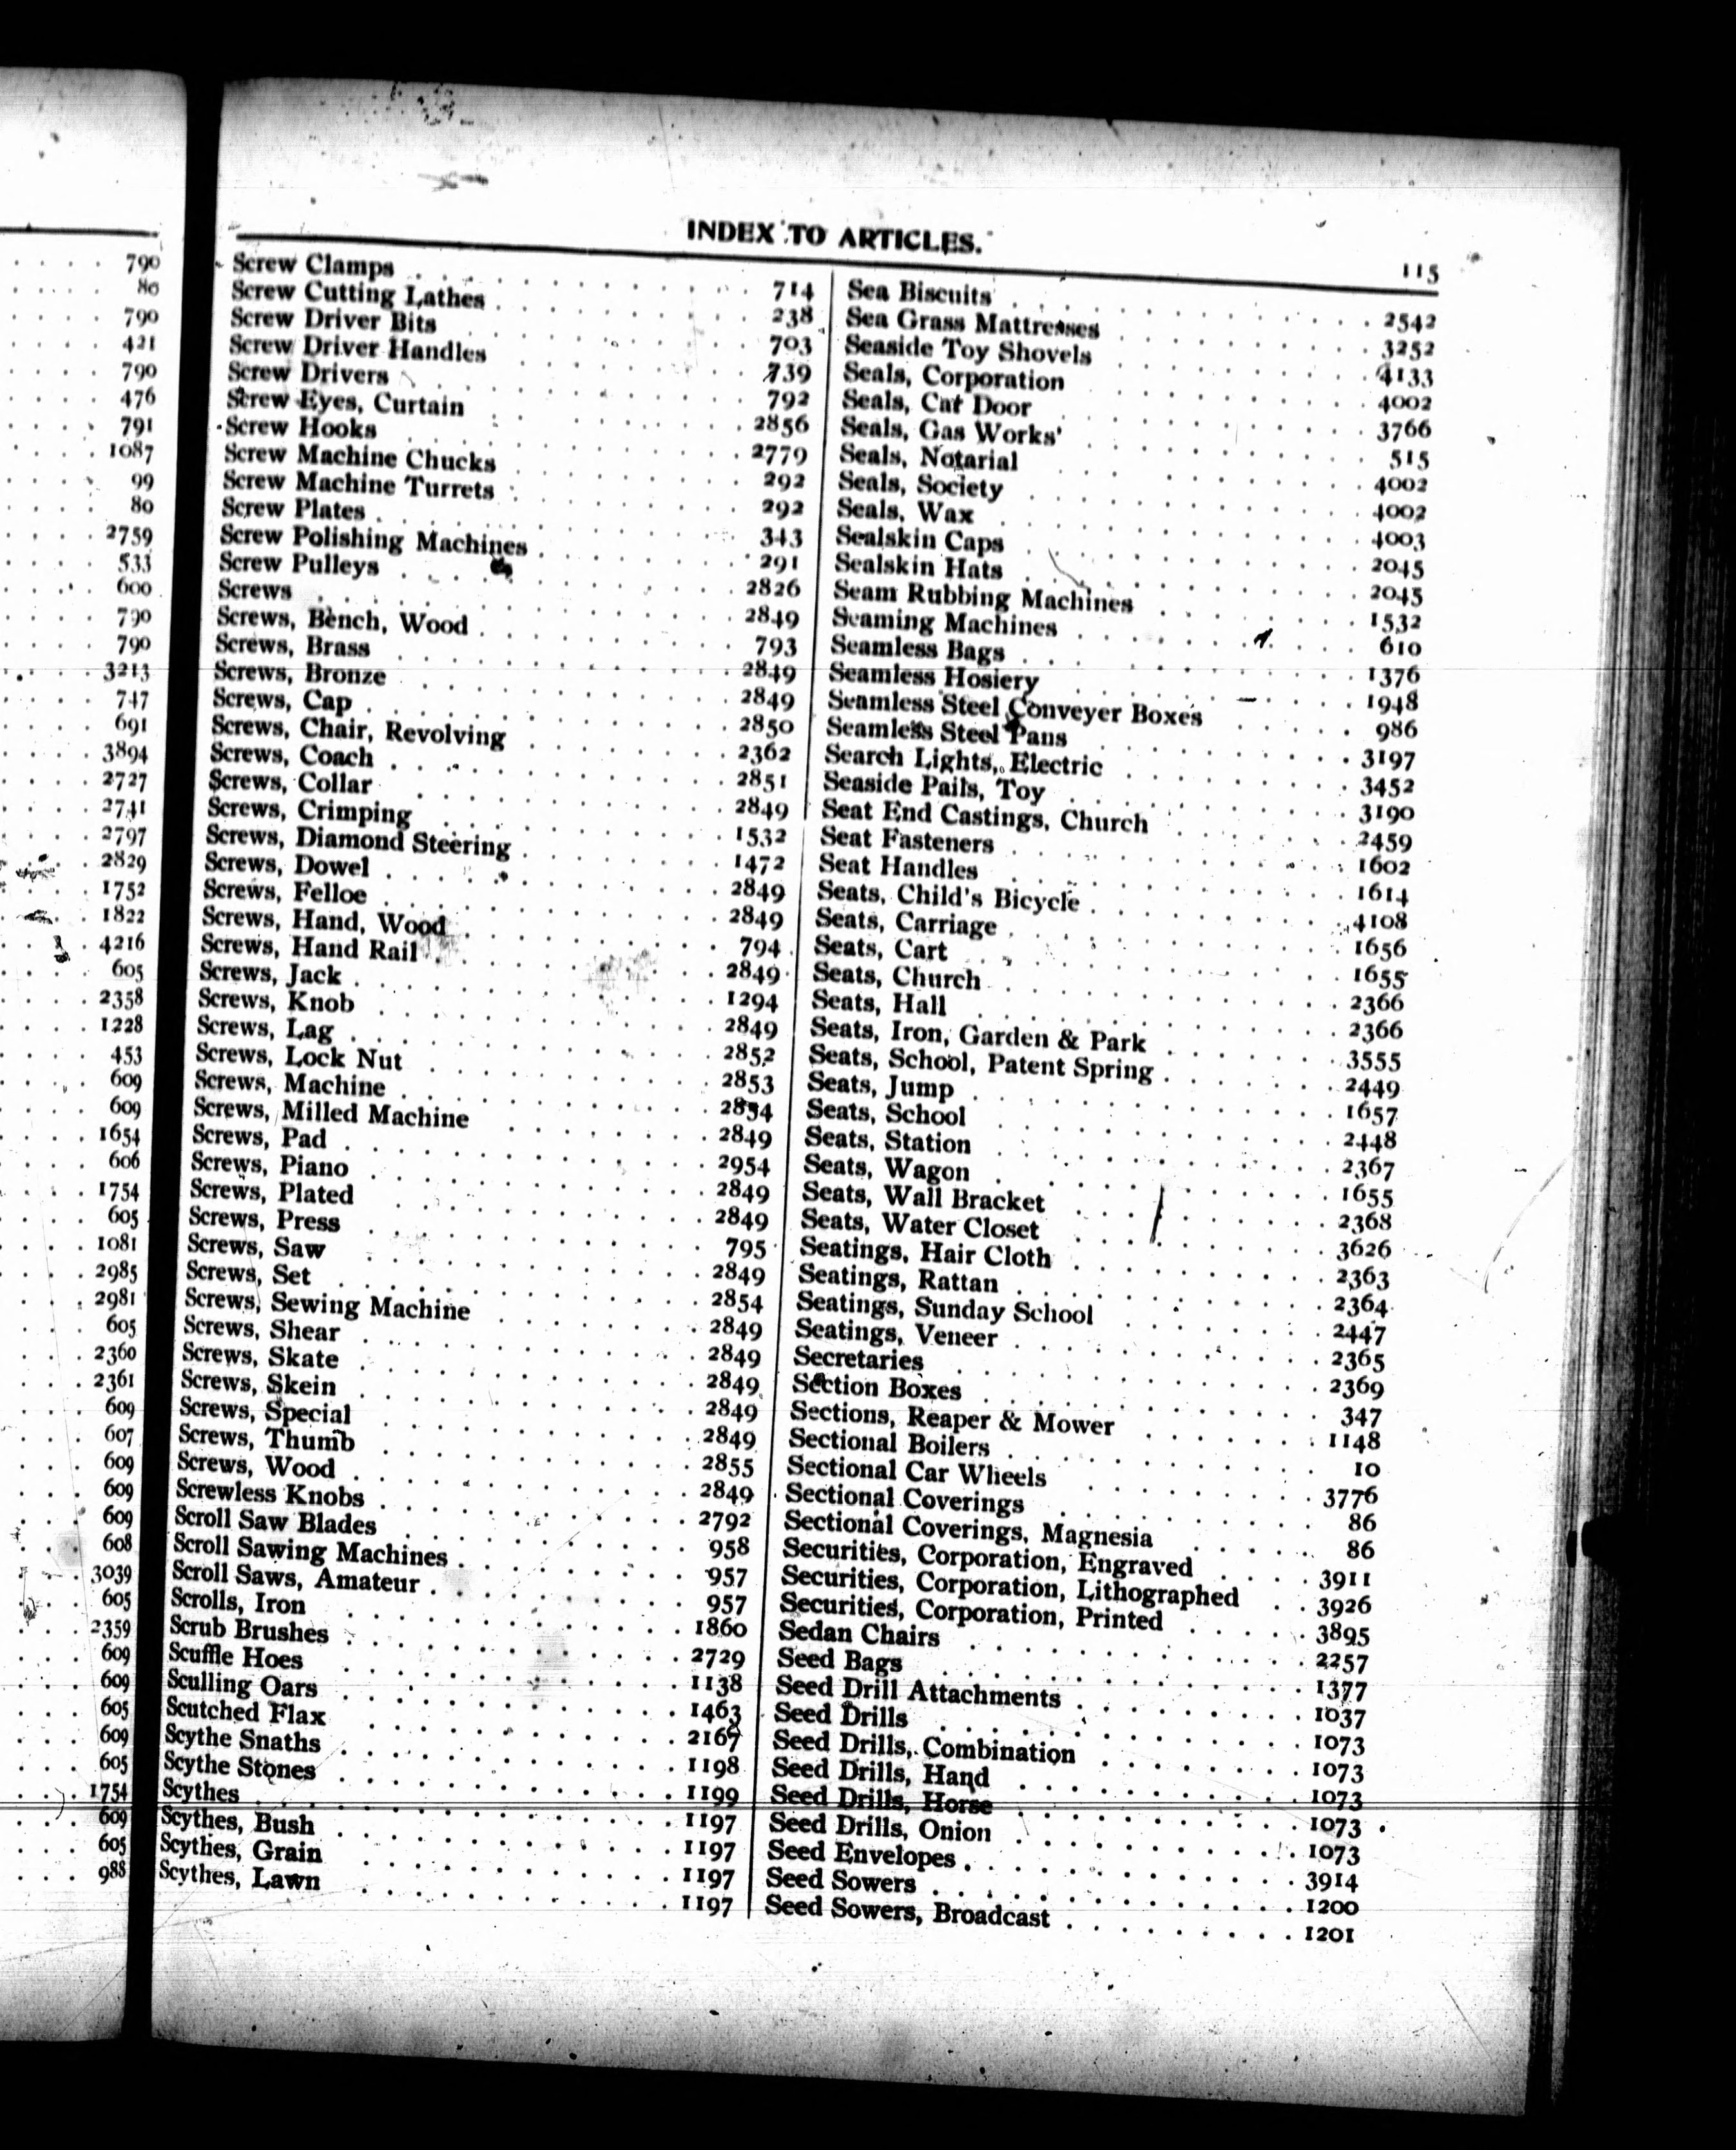 790
80
790
421
790
476
791
1087
99
80
2759
533
600
790
790
3213
747
691
3894
2727
2741
2797
2829
1752
1822
4216
605
2358
1228
453
609
609
1654
606
1754
605
1081
2985
2981
605
2360
2361
609
607
609
609
609
608
3039
605
2359
609
609
605
609
605
1754
609
605
988
INDEX TO ARTICLES.
115
Screw Clamps 714
Screw Cutting Lathes 238
Screw Driver Bits 703
Screw Driver Handles 739
Screw Drivers 792
Screw Eyes, Curtain 2856
Screw Hooks 2779
Screw Machine Chucks 292
Screw Machine Turrets 292
Screw Plates 343
Screw Polishing Machines 291
Screw Pulleys 2826
Screws 2849
Screws, Bench, Wood 793
Screws, Brass 2849
Screws, Bronze 2849
Screws, Cap 2850
Screws, Chair, Revolving 2362
Screws, Coach 2851
Screws, Collar 2849
Screws, Crimping 1532
Screws, Diamond Steering 1472
Screws, Dowel 2849
Screws, Felloe 2849
Screws, Hand, Wood 794
Screws, Hand Rail 2849
Screws, Jack 1294
Screws, Knob 2849
Screws, Lag 2852
Screws, Lock Nut 2853
Screws, Machine 2854
Screws, Milled Machine 2849
Screws, Pad 2954
Screws, Piano 2849
Screws, Plated 2849
Screws, Press 795
Screws, Saw 2849
Screws, Set 2854
Screws, Sewing Machine 2849
Screws, Shear 2849
Screws, Skate 2849
Screws, Skein 2849
Screws, Special 2849
Screws, Thumb 2855
Screws, Wood 2849
Screwless Knobs 2792
Scroll Saw Blades 958
Scroll Sawing Machines 957
Scroll Saws, Amateur 957
Scrolls, Iron 1860
Scrub Brushes 2729
Scuffle Hoes 1138
Sculling Oars 1463
Scutched Flax 2167
Scythe Snaths 1198
Scythe Stones 1199
Scythes 1197
Scythes, Bush 1197
Scythes, Grain 1197
Scythes, Lawn 1197
Sea Biscuits 2542
Sea Grass Mattresses 3252
Seaside Toy Shovels 4133
Seals, Corporation 4002
Seals, Car Door 3766
Seals, Gas Works' 515
Seals, Notarial 4002
Seals, Society 4002
Seals, Wax 4003
Sealskin Caps 2045
Sealskin Hats 2045
Seam Rubbing Machines 1532
Seaming Machines 610
Seamless Bags 1376
Seamless Hosiery 1948
Seamless Steel Conveyer Boxes 986
Seamless Steel Pans 3197
Search Lights, Electric 3452
Seaside Pails, Toy 3190
Seat End Castings, Church 2459
Seat Fasteners 1602
Seat Handles 1614
Seats, Child's Bicycle 4108
Seats, Carriage 1656
Seats, Cart 1655
Seats, Church 2366
Seats, Hall 2366
Seats, Iron, Garden & Park 3555
Seats, School, Patent Spring 2449
Seats, Jump 1657
Seats, School 2448
Seats, Station 2367
Seats, Wagon 1655
Seats, Wall Bracket 2368
Seats, Water Closet 3626
Seatings, Hair Cloth 2363
Seatings, Rattan 2364
Seatings, Sunday School 2447
Seatings, Veneer 2365
Secretaries 2369
Section Boxes 347
Sections, Reaper & Mower 1148
Sectional Boilers 10
Sectional Car Wheels 3776
Sectional Coverings 86
Sectional Coverings, Magnesia 86
Securities, Corporation, Engraved 3911
Securities, Corporation, Lithographed 3926
Securities, Corporation, Printed 3895
Sedan Chairs 2257
Seed Bags 1377
Seed Drill Attachments 1037
Seed Drills 1073
Seed Drills, Combination 1073
Seed Drills, Hand 1073
Seed Drills, Horse 1073
Seed Drills, Onion 1073
Seed Envelopes 3914
Seed Sowers 1200
Seed Sowers, Broadcast 1201